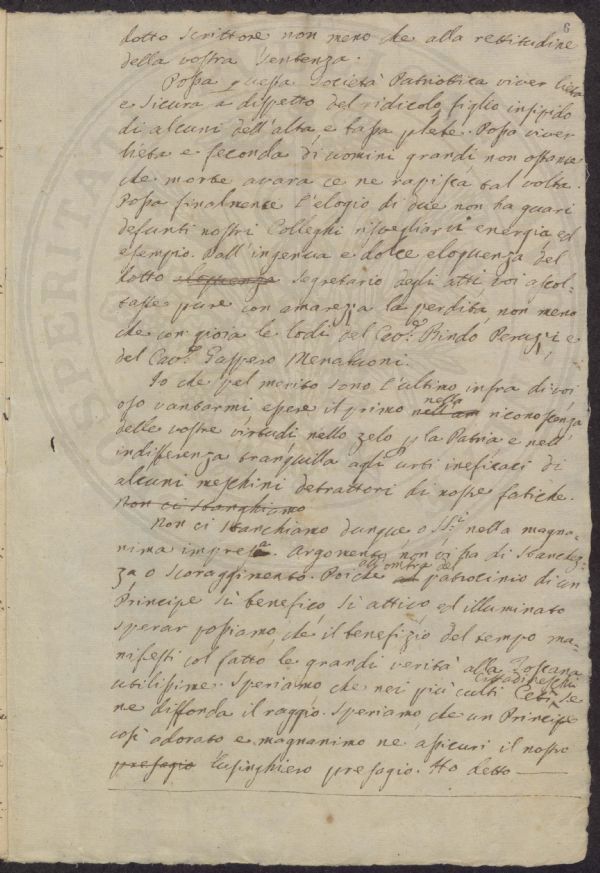 6
dotto scrittore non meno che alla rettitudine
della vostra sentenza.
Possa questa Società Patriottica viver lieta
e sicura a dispetto del ridicolo figlio insipido
di alcuni dell'alta e bassa plebe. Possa viver
lieta e feconda di uomini grandi non ostante
che morte avara ce ne rapisca tal volta.
Possa finalmente l'elogio di due non ha guari
defunti nostri Colleghi risvegliarvi energia ed
esempio. Dall'ingenua e dolce eloquenza del
dotto eloquenza Segretario degli atti voi ascol-
taste pure con amarezza la perdita, non meno
che con gioia le lodi del Cav.e Bindo Peruzzi e
del Cav.e Gaspero Menabuoni.
Io che pel merito sono l'ultimo infra di voi
oso vantarmi essere il primo nell'am nella riconoscenza
delle vostre virtudi nello zelo p la Patria e nell'
indifferenza tranquilla agli urti inefficaci di
alcuni meschini detrattori di nostre fatiche.
Non ci stanchiamo
Non ci stanchiamo dunque o SS.ri nella magna-
nima impresa. Argomento non vi ha di stanchez-
za o scoraggimento. Poiche all'ombra del patrocinio di un
Principe sì benefico sì attivo ed illuminato
sperar possiamo che il benefizio del tempo ma-
nifesti col fatto le grandi verità alla Toscana
utilissime. Speriamo che nei più culti Cittadineschi Ceti se
ne diffonda il raggio. Speriamo che un Principe
così adorato e magnanimo ne assicuri il nostro
presagio lusinghiero presagio. Ho detto